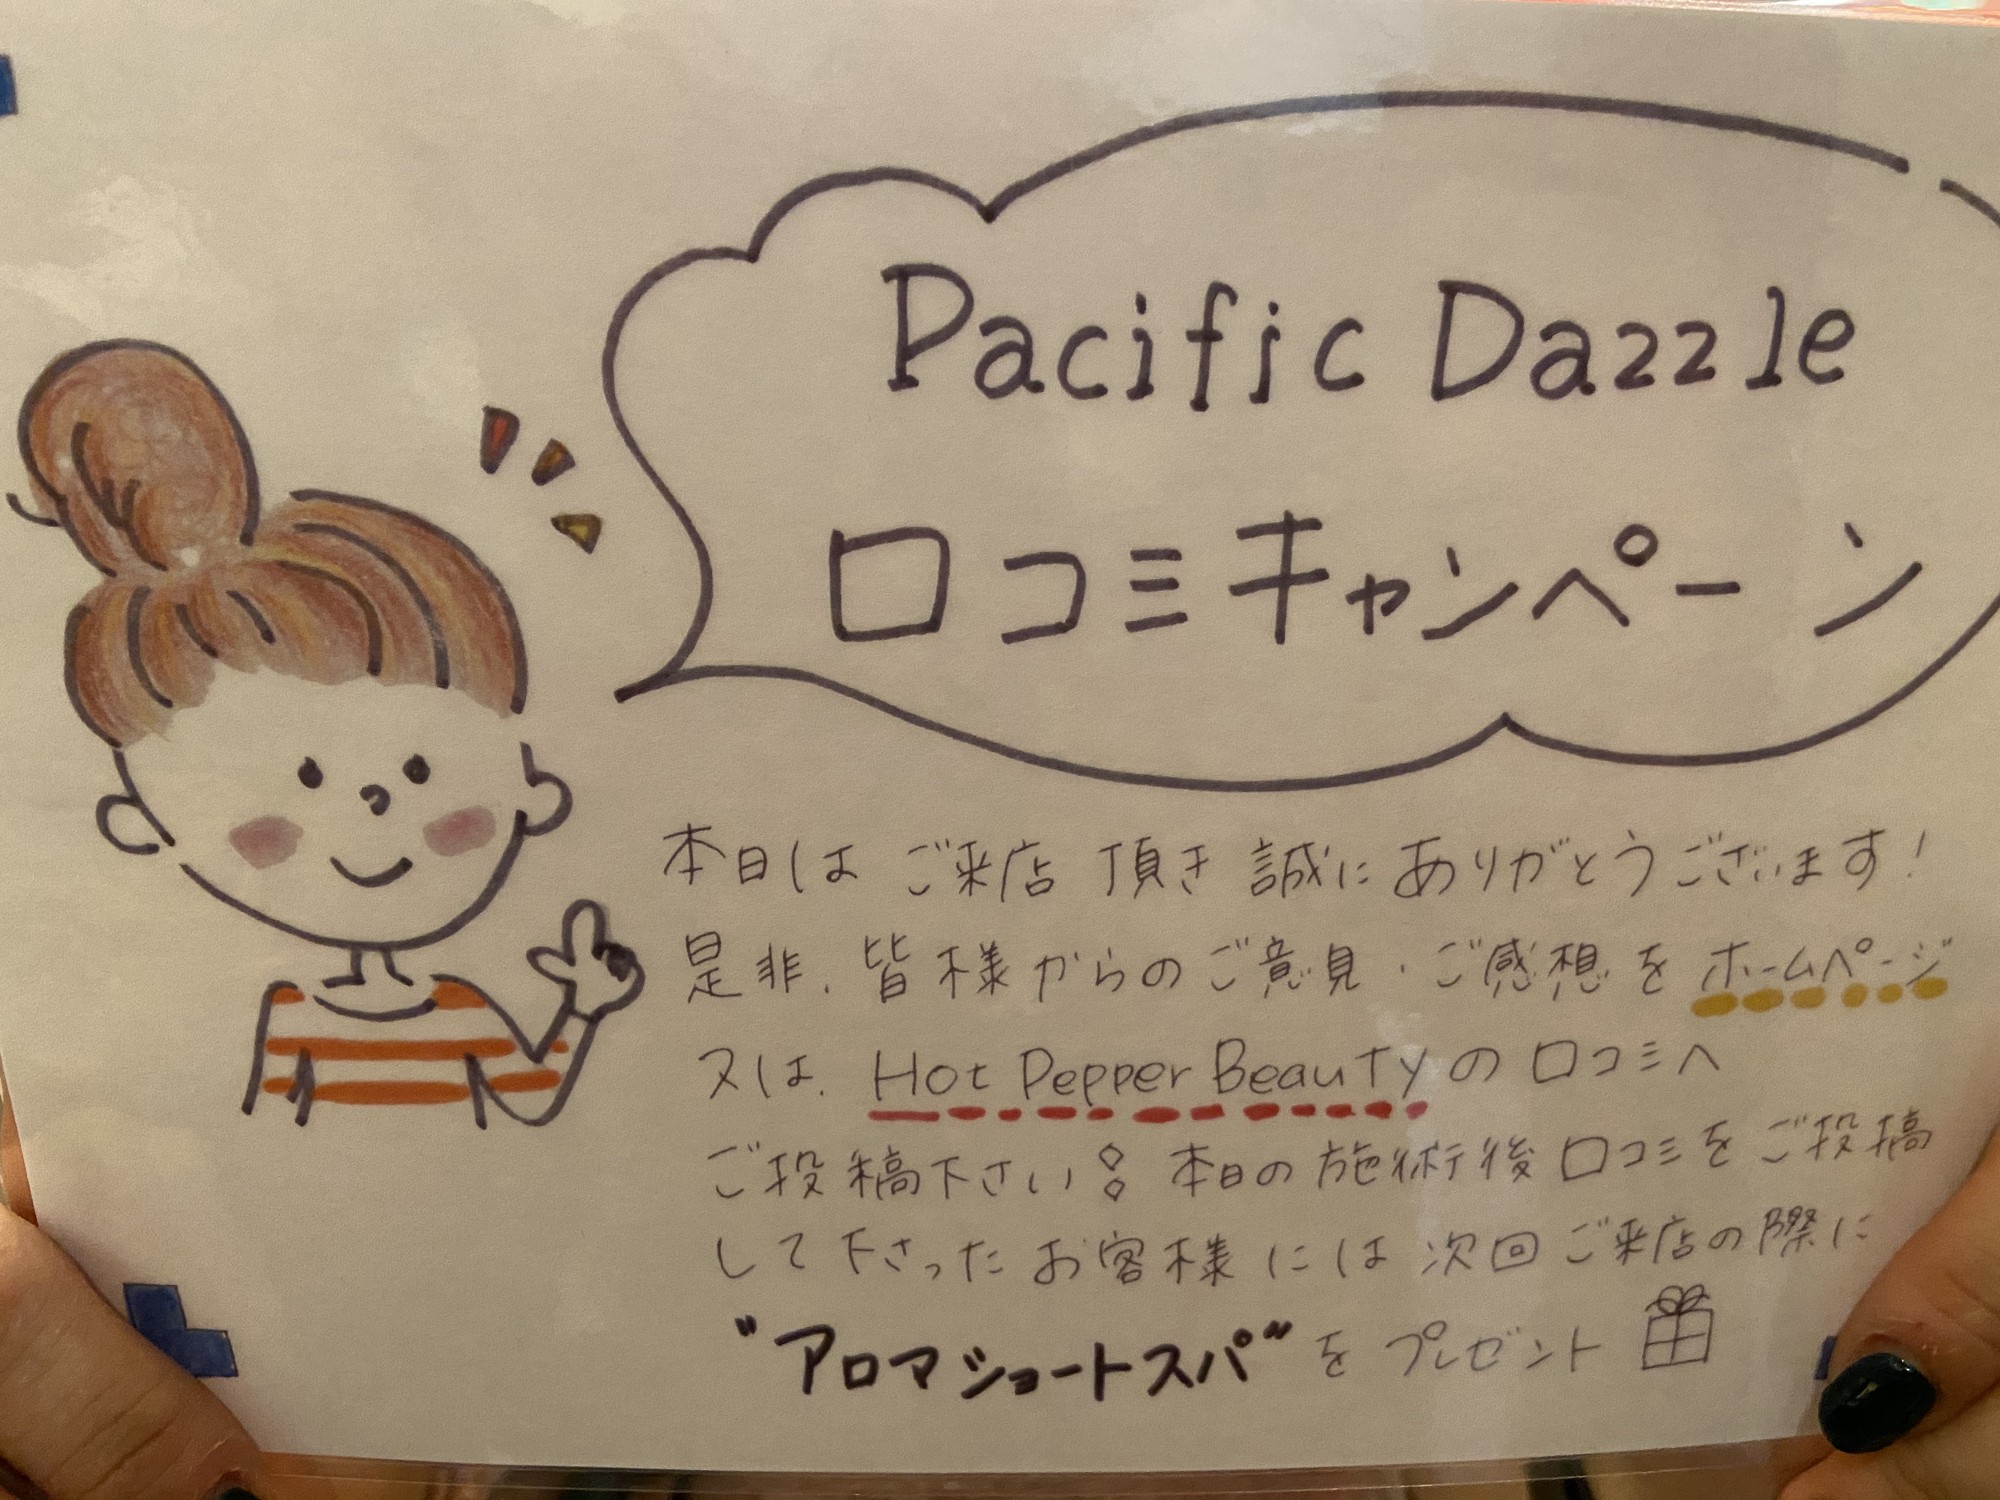 Pacific Dazzle
口コミキャンペーン
本日は ご来店 頂き 誠に ありがとうございます!
是非、皆様からのご意見・ご感想を ホームページ
又は、Hot Pepper Beautyの口コミへ
ご投稿下さい!! 本日の施術後口コミをご投稿
して下さったお客様には次回ご来店の際に
"アロマショートスパ"をプレゼント